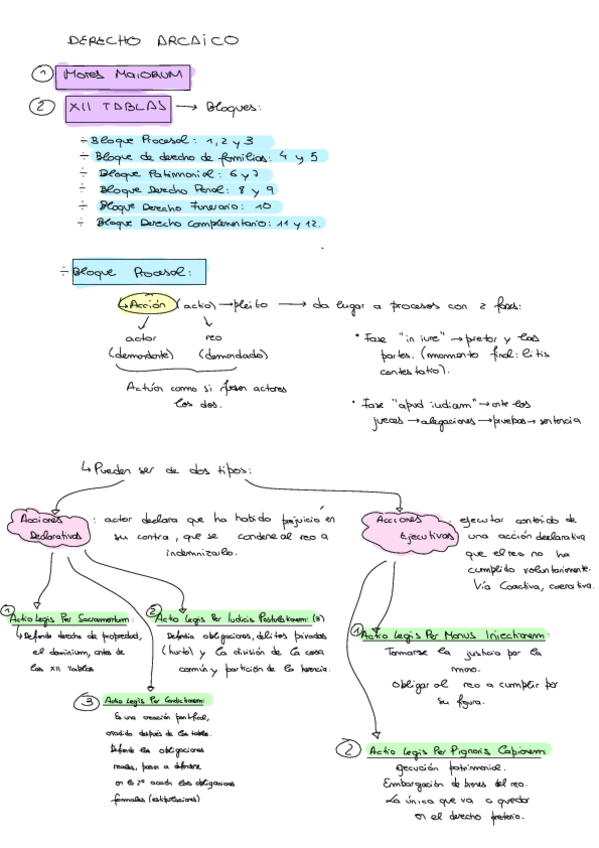 DERECHO ARCAICO
① MORES MAIORUM
② XII TABLAS → Bloques:
÷ Bloque Procesal: 1, 2 y 3
÷ Bloque de derecho de familias: 4 y 5
÷ Bloque Patrimonial: 6 y 7
÷ Bloque Derecho Penal: 8 y 9
÷ Bloque Derecho Funerario: 10
÷ Bloque Derecho Complementario: 11 y 12.
÷ Bloque Procesal:
↳ Acción (actio) → pleito → da lugar a procesos con 2 fases:
actor reo
(demandante) (demandado)
Actúan como si fuesen actores
los dos.
• Fase "in iure" → pretor y las
partes. (momento final: litis
contestatio).
• Fase "apud iudiam" → ante los
jueces → alegaciones → pruebas → sentencia
↳ Pueden ser de dos tipos:
Acciones
Declarativas
: actor declara que ha habido prejuicio en
su contra, que se condene al reo a
indemnizarlo.
Acciones
Ejecutivas
: ejecutar contenido de
una acción declarativa
que el reo no ha
cumplido voluntariamente.
Vía Coactiva,
① Actio Legis Per Sacramentum:
↳ Defiende derecho de propiedad,
el dominium, antes de
las XII Tablas
② Actio Legis Per Iudicis Postulationem: (3)
Defendía obligaciones, delitos privados
(hurto) y la división de la cosa
común y partición de la herencia.
③ Actio Legis Per Condictionem:
Es una creación pontifical,
creada después de las tablas.
Defiende las obligaciones
reales, pasan a defenderse
en la 2ª acción las obligaciones
formales (estipulaciones)
① Actio Legis Per Manus Iniectionem:
Tomarse la justicia por la
mano.
Obligar al reo a cumplir por
su figura.
② Actio Legis Per Pignoris Capionem
ejecución patrimonial.
Embargación de bienes del reo.
La única que va a quedar
en el derecho pretorio.